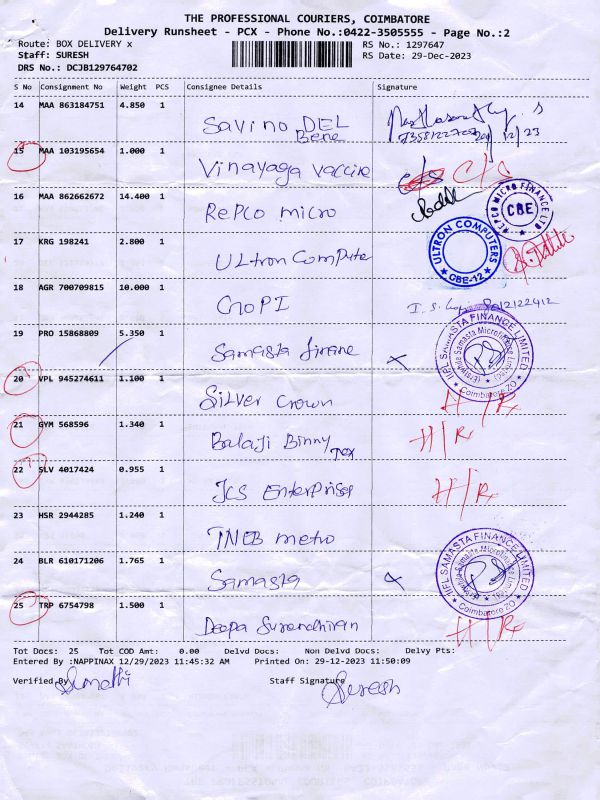 THE PROFESSIONAL COURIERS, COIMBATORE
Delivery Runsheet - PCX - Phone No.:0422-3505555 - Page No.:2
Route: BOX DELIVERY x RS No.: 1297647
Staff: SURESH RS Date: 29-Dec-2023
DRS No.: DCJB129764702
S No Consignment No Weight PCS Consignee Details Signature
14 MAA 863184751 4.850 1 Savino DEL Bene
15 MAA 103195654 1.000 1 Vinayaga vaccine c/s
16 MAA 862662672 14.400 1 RePco micro
REPCO MICRO FINANCE LTD CBE
17 KRG 198241 2.800 1 ULtron Computer
ULTRON COMPUTERS CBE-12
18 AGR 700709815 10.000 1 GOPI
19 PRO 15868809 5.350 1 Samasta finane x
IIFL SAMASTA FINANCE LIMITED (Erstwhile Samasta Microfinance Limited) Coimbatore ZO
20 VPL 945274611 1.100 1 Silver Crown H/R
21 GYM 568596 1.340 1 Balaji Binny Tex H/R
22 SLV 4017424 0.955 1 JCS Enterprises H/R
23 HSR 2944285 1.240 1 TNEB metro
24 BLR 610171206 1.765 1 Samasta x
IIFL SAMASTA FINANCE LIMITED (Erstwhile Samasta Microfinance Limited) Coimbatore ZO
25 TRP 6754798 1.500 1 Deepa Surendhiran H/R
Tot Docs: 25 Tot COD Amt: 0.00 Delvd Docs: Non Delvd Docs: Delvy Pts:
Entered By :NAPPINAX 12/29/2023 11:45:32 AM Printed On: 29-12-2023 11:50:09
Verified By Sumathi Staff Signature Suresh